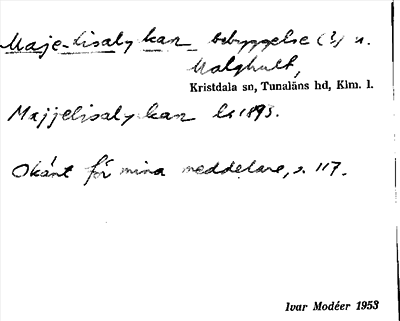 Maje-Lisalyckan bebyggelse (?) u.
Malghult,
Kristdala sn, Tunaläns hd, Klm. l.
Majjelisalyckan ls 1893.
Okänt för mina meddelare, s. 117.
Ivar Modéer 1953